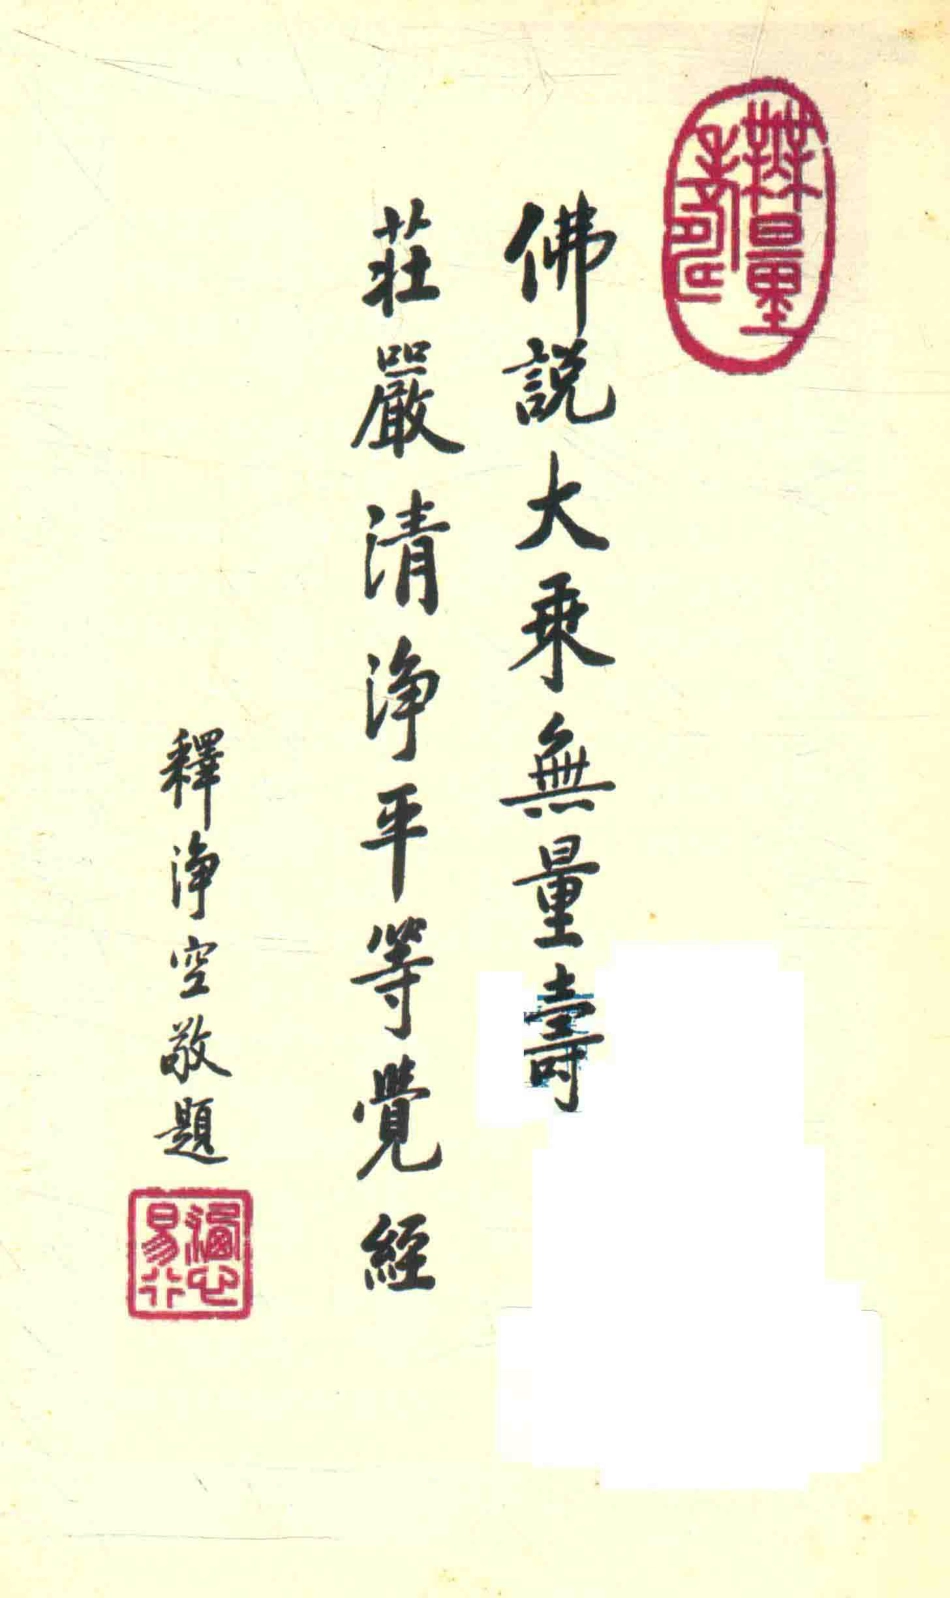 無量壽
佛説大乘無量壽
莊嚴清淨平等覺經
釋淨空敬題